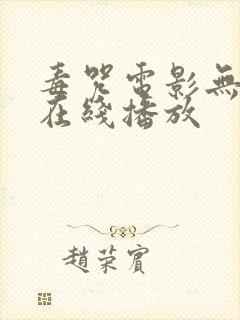 毒咒電影無
在綫播放
趙荣賓